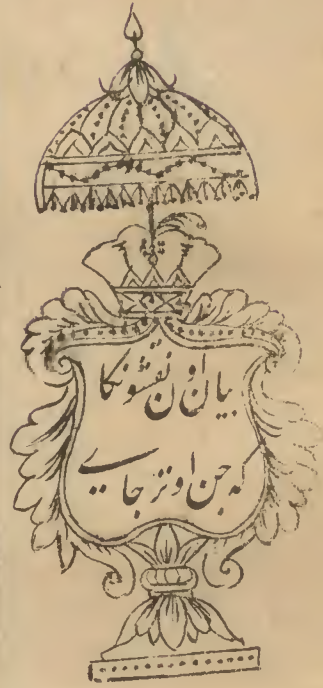 بیان اون نقشونکا
که جن اوتر جاے